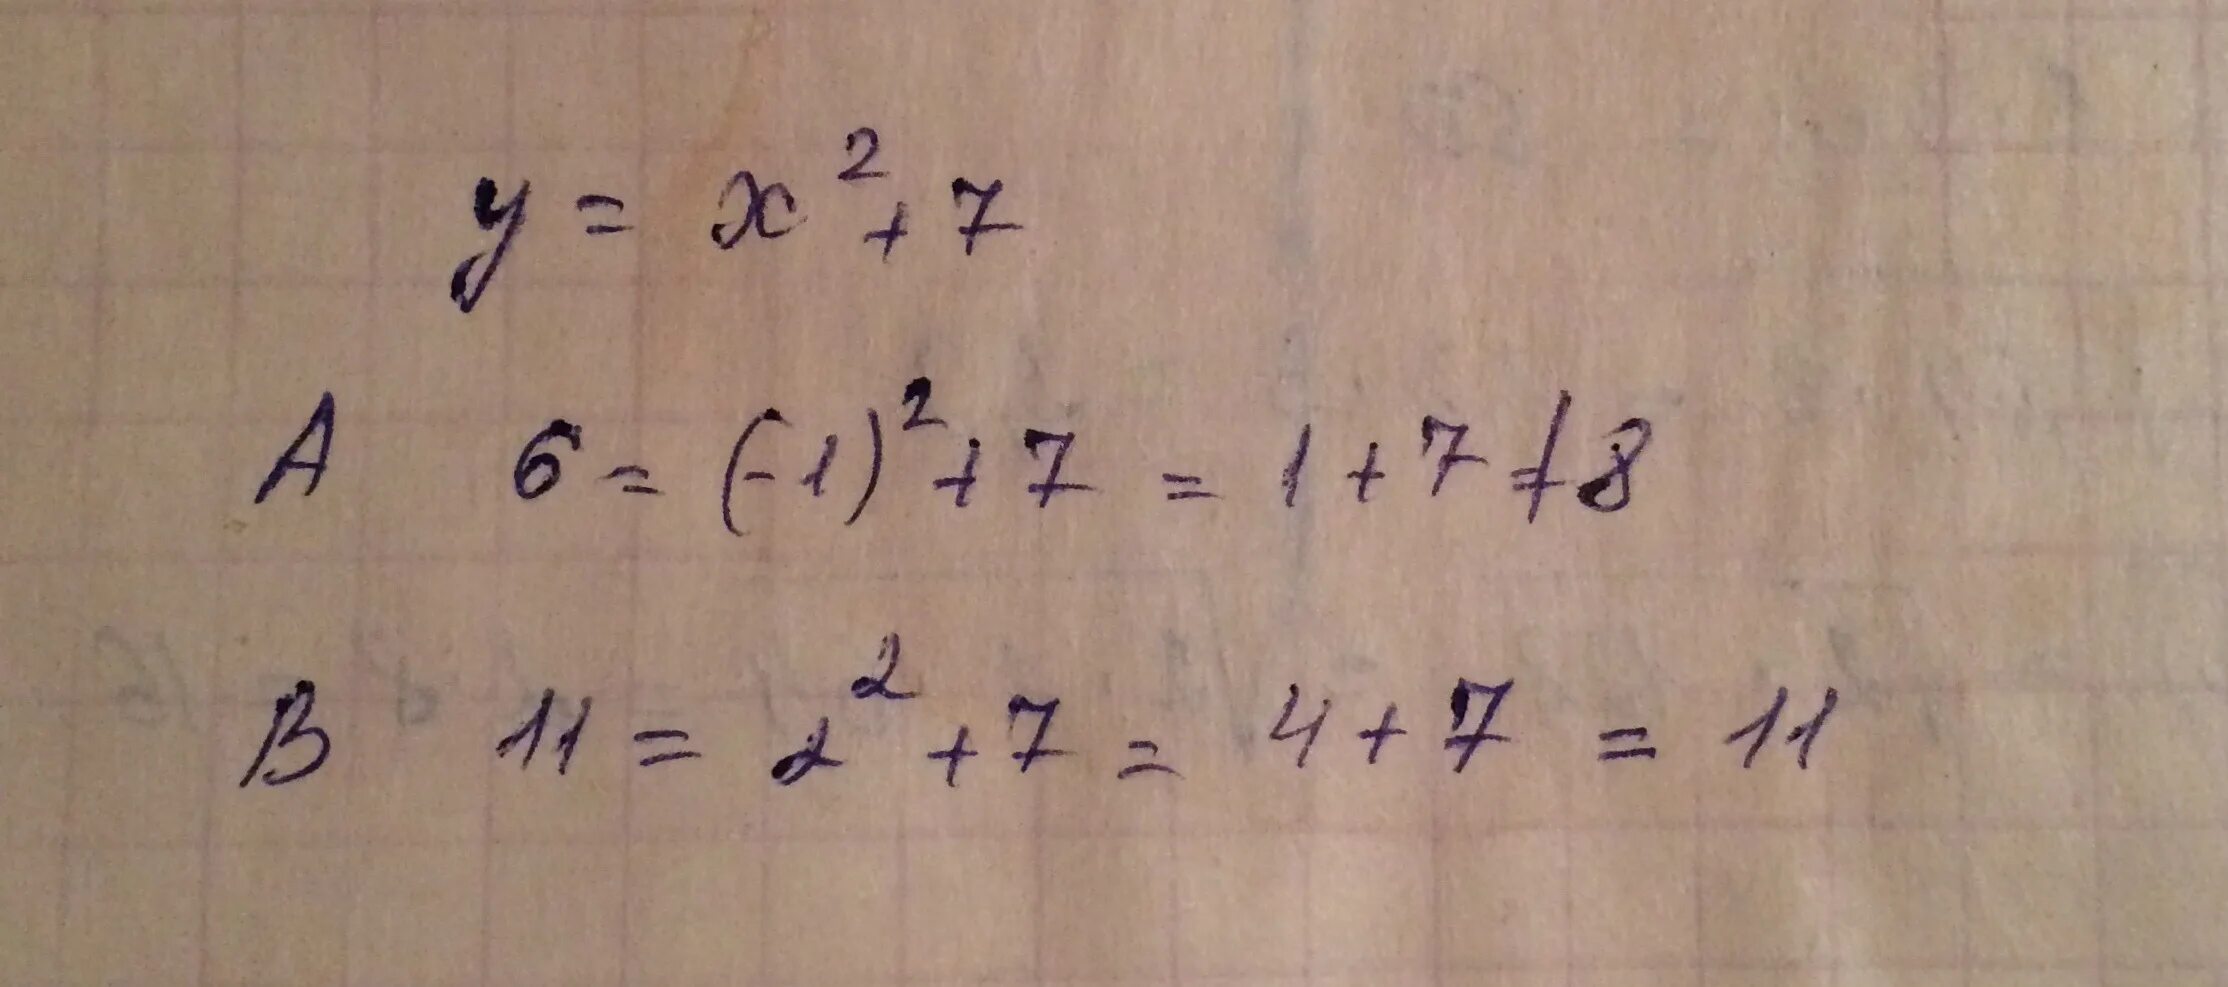 y = x² + 7
A 6 = (-1)² + 7 = 1 + 7 ≠ 8
B 11 = 2² + 7 = 4 + 7 = 11